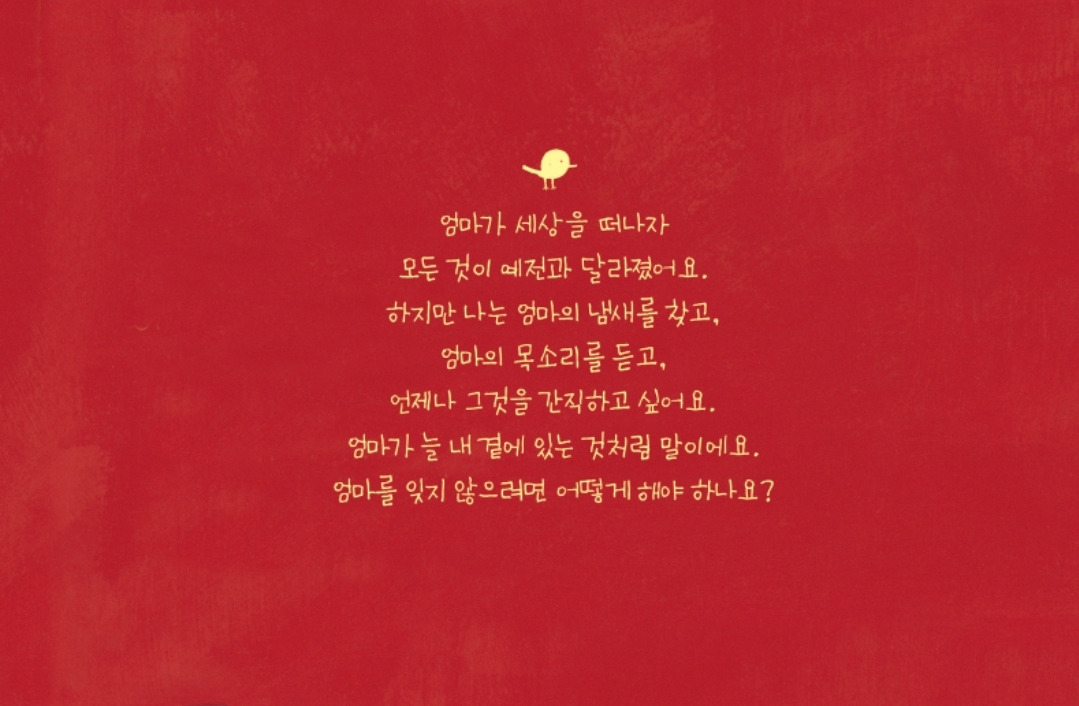 엄마가 세상을 떠나자
모든 것이 예전과 달라졌어요.
하지만 나는 엄마의 냄새를 찾고,
엄마의 목소리를 듣고,
언제나 그것을 간직하고 싶어요.
엄마가 늘 내 곁에 있는 것처럼 말이에요.
엄마를 잊지 않으려면 어떻게 해야 하나요?